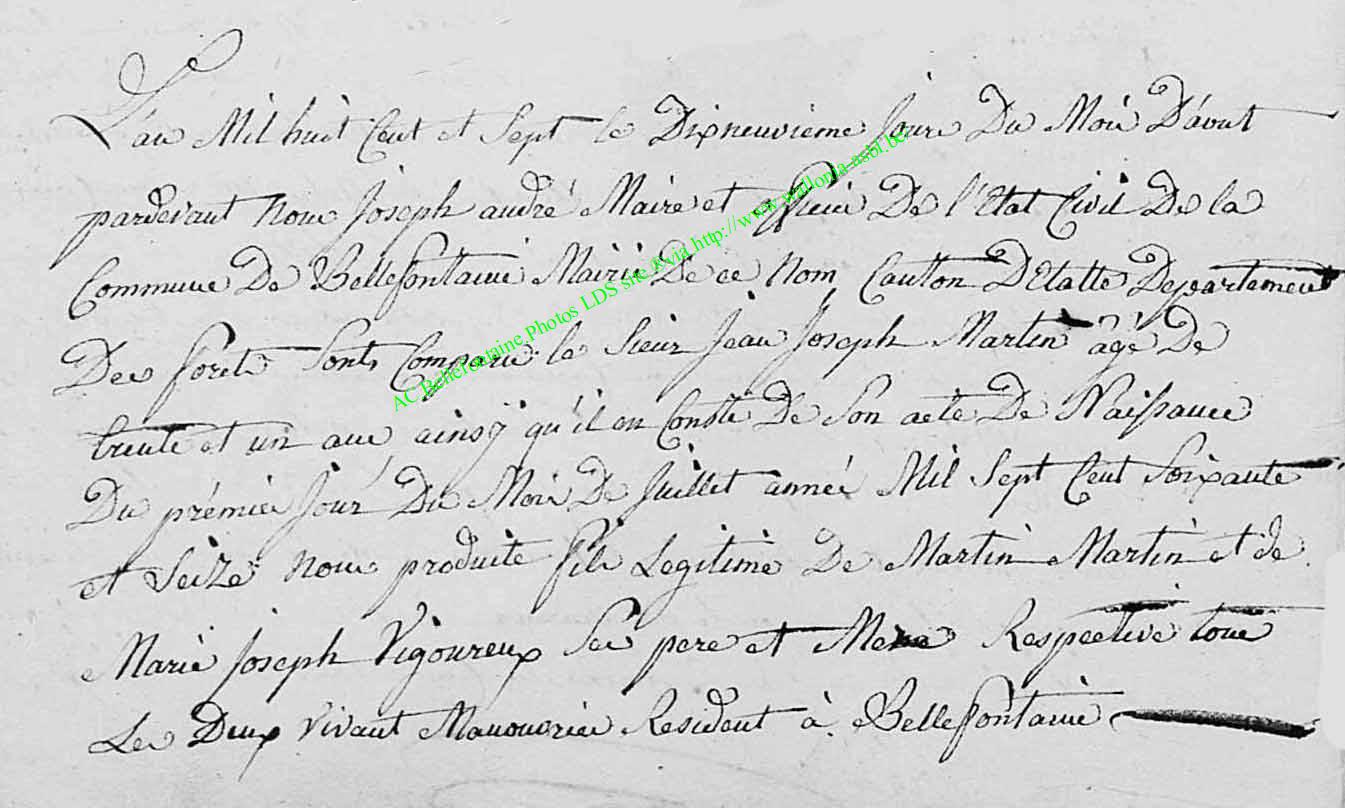 L'an Mil huit Cent et Sept le Dixneuvieme Jour Du Mois D'aout
pardevant nous Joseph andré Maire et officier De l'Etat Civil De la
Commune De Bellefontaine Mairie De ce Nom Canton D'Etalle Departement
Des forets Sont Comparu le Sieur Jean Joseph Martin agé De
trente et un ans ainsy qu'il en Conste De Son acte De Naissance
Du prémier Jour Du Mois De Juillet année Mil Sept Cent Soixante
et Seize Nous produite fils Legitime De Martin Martin et de
Marie Joseph Vigoureux Ses pere et Mere Respective tous
Les Deux Vivant Manouvrier Resident à Bellefontaine
AC Bellefontaine Photos LDS site & via http://www.wallonia-asbl.be/